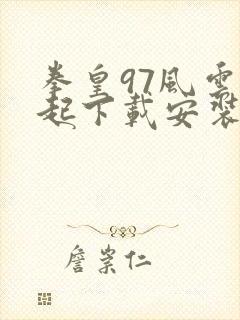 拳皇97風雲再
起下載安裝
詹崇仁